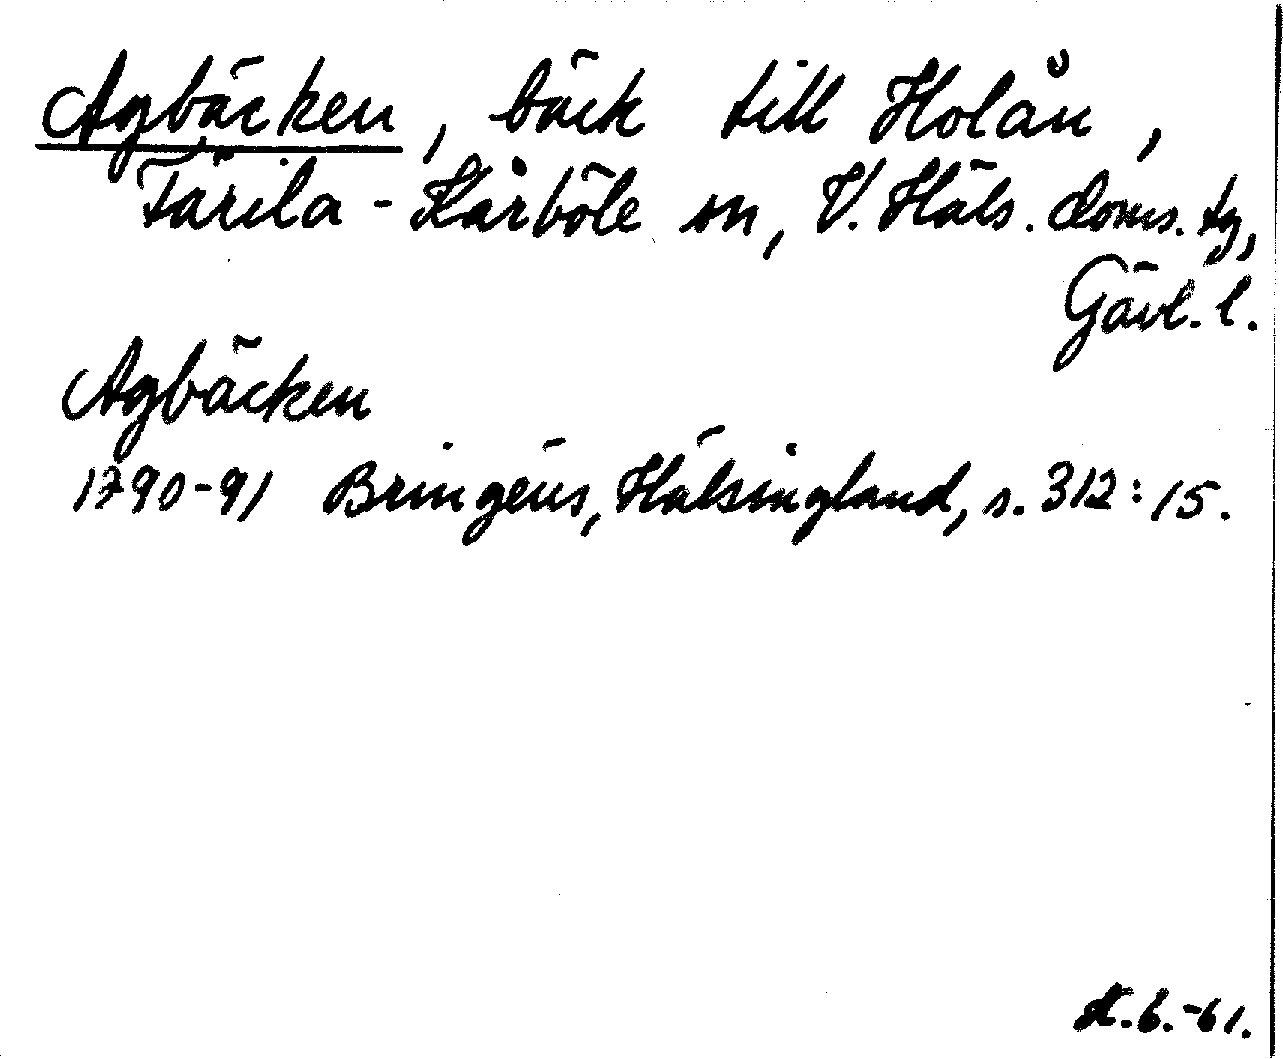 Agbäcken, bäck till Holån,
Färila-Kårböle sn, V. Häls. doms. tg,
Gävl. l.
Agbäcken
1790-91 Bringéus, Hälsingland, s. 312:15.